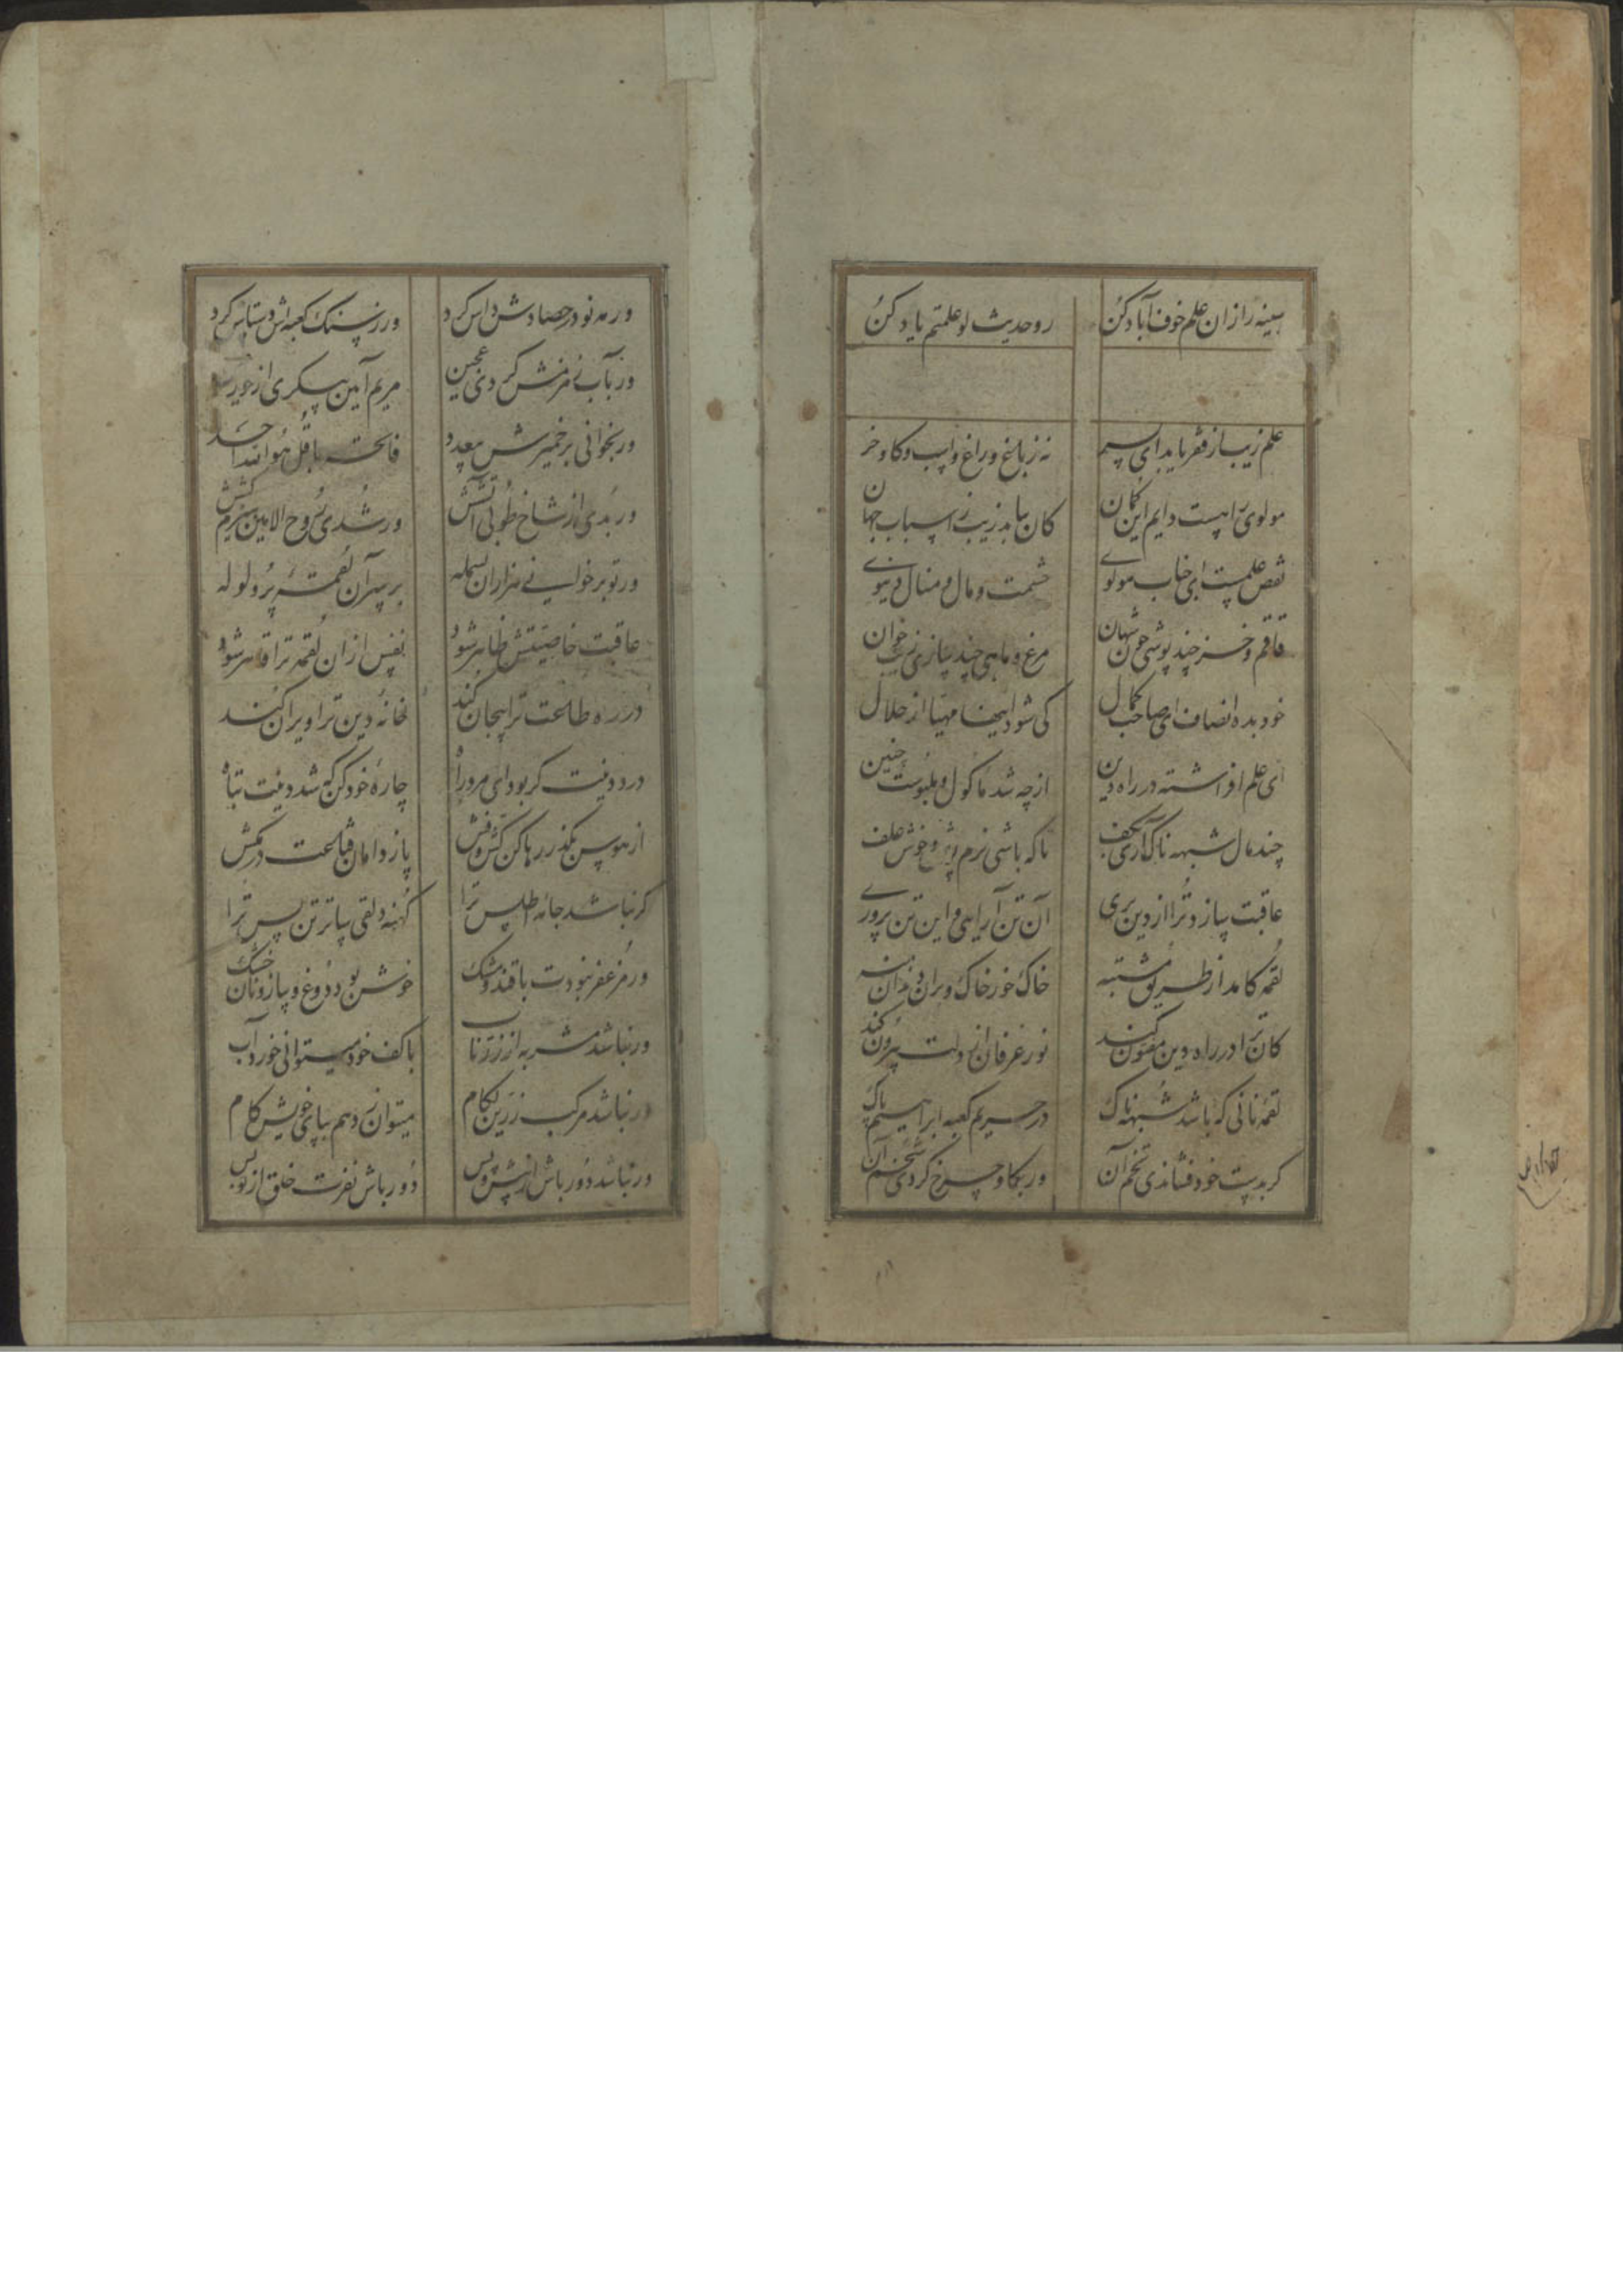 سینه را زان علم خوف آباد کن روحدیث لو علمتم یاد کن
علم زیب از فقر یابد ای پسر نه ز باغ و راغ و اسپ و کاو و خر
مولوی را هست دایم این کمان کان بیابد زیب ز اسباب جهان
نقص علمست ای جناب مولوی حشمت و مال و منال دنیوی
قاقم و خز چند پوشی چون شهان مرغ و ماهی چند سازی زیب خوان
خود بده انصاف ای صاحب کمال کی شود اینها مهیا از حلال
ای علم افراشته در راه دین از چه شد ماکول و ملبوست چنین
چند مال شبهه ناک آری بکف تا که باشی نرم پوش و خوش علف
عاقبت سازد ترا از دین بری آن تن آرایی و این تن پروری
لقمه کامد از طریق مشتبه خاک خور خاک و بران دندان منه
کان ترا در راه دین مغبون کند نور عرفان از دلت بیرون کند
لقمه نانی که باشد شبهه ناک در حریم کعبه ابراهیم پاک
کر بدست خود فشاندی تخم آن ور بکاو چرخ کردی شخم آن
ور مه نو در حصادش داس کرد ور ز سنک کعبه اش دستاس کرد
ور بآب زمزمش کردی عجین مریم آیین پیکری از حور عین
ور بخوانی بر خمیرش بیعدد فاتحه با قل هو الله احد
ور بدی از شاخ طوبی آتشش ور شدی روح الامین هیزم کشش
ور تو برخوانی هزاران بسمله بر سر آن لقمهٔ پر ولوله
عاقبت خاصیتش ظاهر شود نفس ازان لقمه ترا قاهر شود
در ره طاعت ترا بیجان کند خانهٔ دین ترا ویران کند
درد دینت کر بود ای مرد راه چارهٔ خود کن که شد دینت تباه
از هوس بکذر رها کن کش و فش پا ز دامان قناعت در مکش
کر نباشد جامه اطلس ترا کهنه دلقی ساتر تن بس ترا
ور مزعفر نبودت با قند و مشک خوش بود دوغ و پیاز و نان خشک
ور نباشد مشربه از زر ناب با کف خود میتوانی خورد آب
ور نباشد مرکب زرین لکام میتوان زد هم بپای خویش کام
ور نباشد دور باش از پیش و پس دور باش نفرت خلق از تو بس